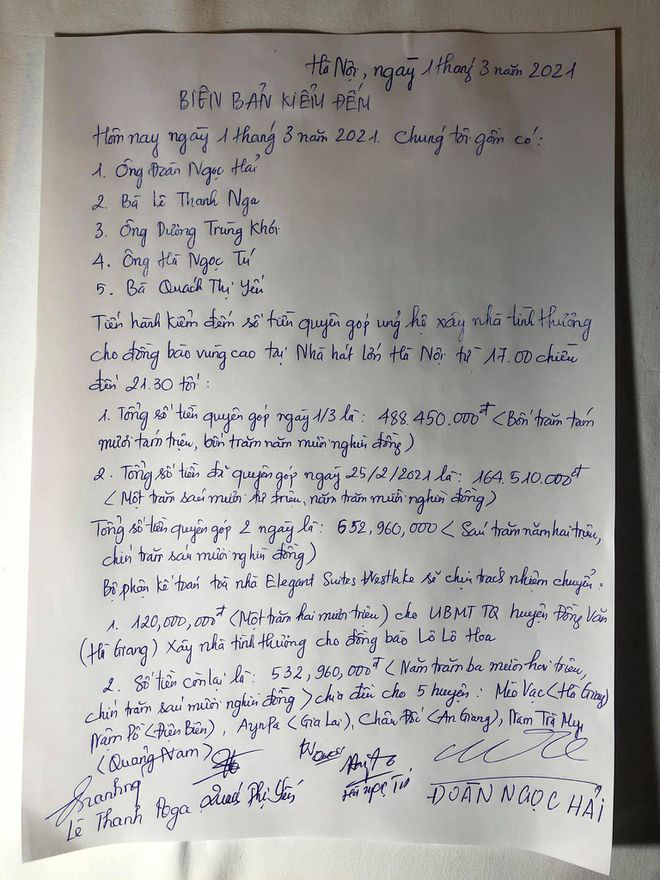 Hà Nội, ngày 1 tháng 3 năm 2021
BIÊN BẢN KIỂM ĐẾM
Hôm nay ngày 1 tháng 3 năm 2021. Chúng tôi gồm có:
1. Ông Đoàn Ngọc Hải
2. Bà Lê Thanh Nga
3. Ông Dương Trung Khôi
4. Ông Hà Ngọc Tú
5. Bà Quách Thị Yến
Tiến hành kiểm đếm số tiền quyên góp ủng hộ xây nhà tình thương
cho đồng bào vùng cao tại Nhà hát lớn Hà Nội từ 17.00 chiều
đến 21.30 tối:
1. Tổng số tiền quyên góp ngày 1/3 là: 488.450.000đ <Bốn trăm tám
mươi tám triệu, bốn trăm năm mươi nghìn đồng)
2. Tổng số tiền đã quyên góp ngày 25/2/2021 là: 164.510.000đ
<Một trăm sáu mươi tư triệu, năm trăm mười nghìn đồng)
Tổng số tiền quyên góp 2 ngày là: 652,960,000 < Sáu trăm năm hai triệu,
chín trăm sáu mươi nghìn đồng)
Bộ phận kế toán toà nhà Elegant Suites Westlake sẽ chịu trách nhiệm chuyển:
1. 120,000,000đ <Một trăm hai mươi triệu) cho UBMT TQ huyện Đồng Văn
(Hà Giang) Xây nhà tình thương cho đồng bào Lô Lô Hoa
2. Số tiền còn lại là: 532,960,000đ <Năm trăm ba mươi hai triệu,
chín trăm sáu mươi nghìn đồng > chia đều cho 5 huyện: Mèo Vạc <Hà Giang)
Nậm Pồ <Điện Biên), AyunPa <Gia Lai), Châu Đốc <An Giang), Nam Trà My
<Quảng Nam)
Lê Thanh Nga Quách Thị Yến Hà Ngọc Tú ĐOÀN NGỌC HẢI